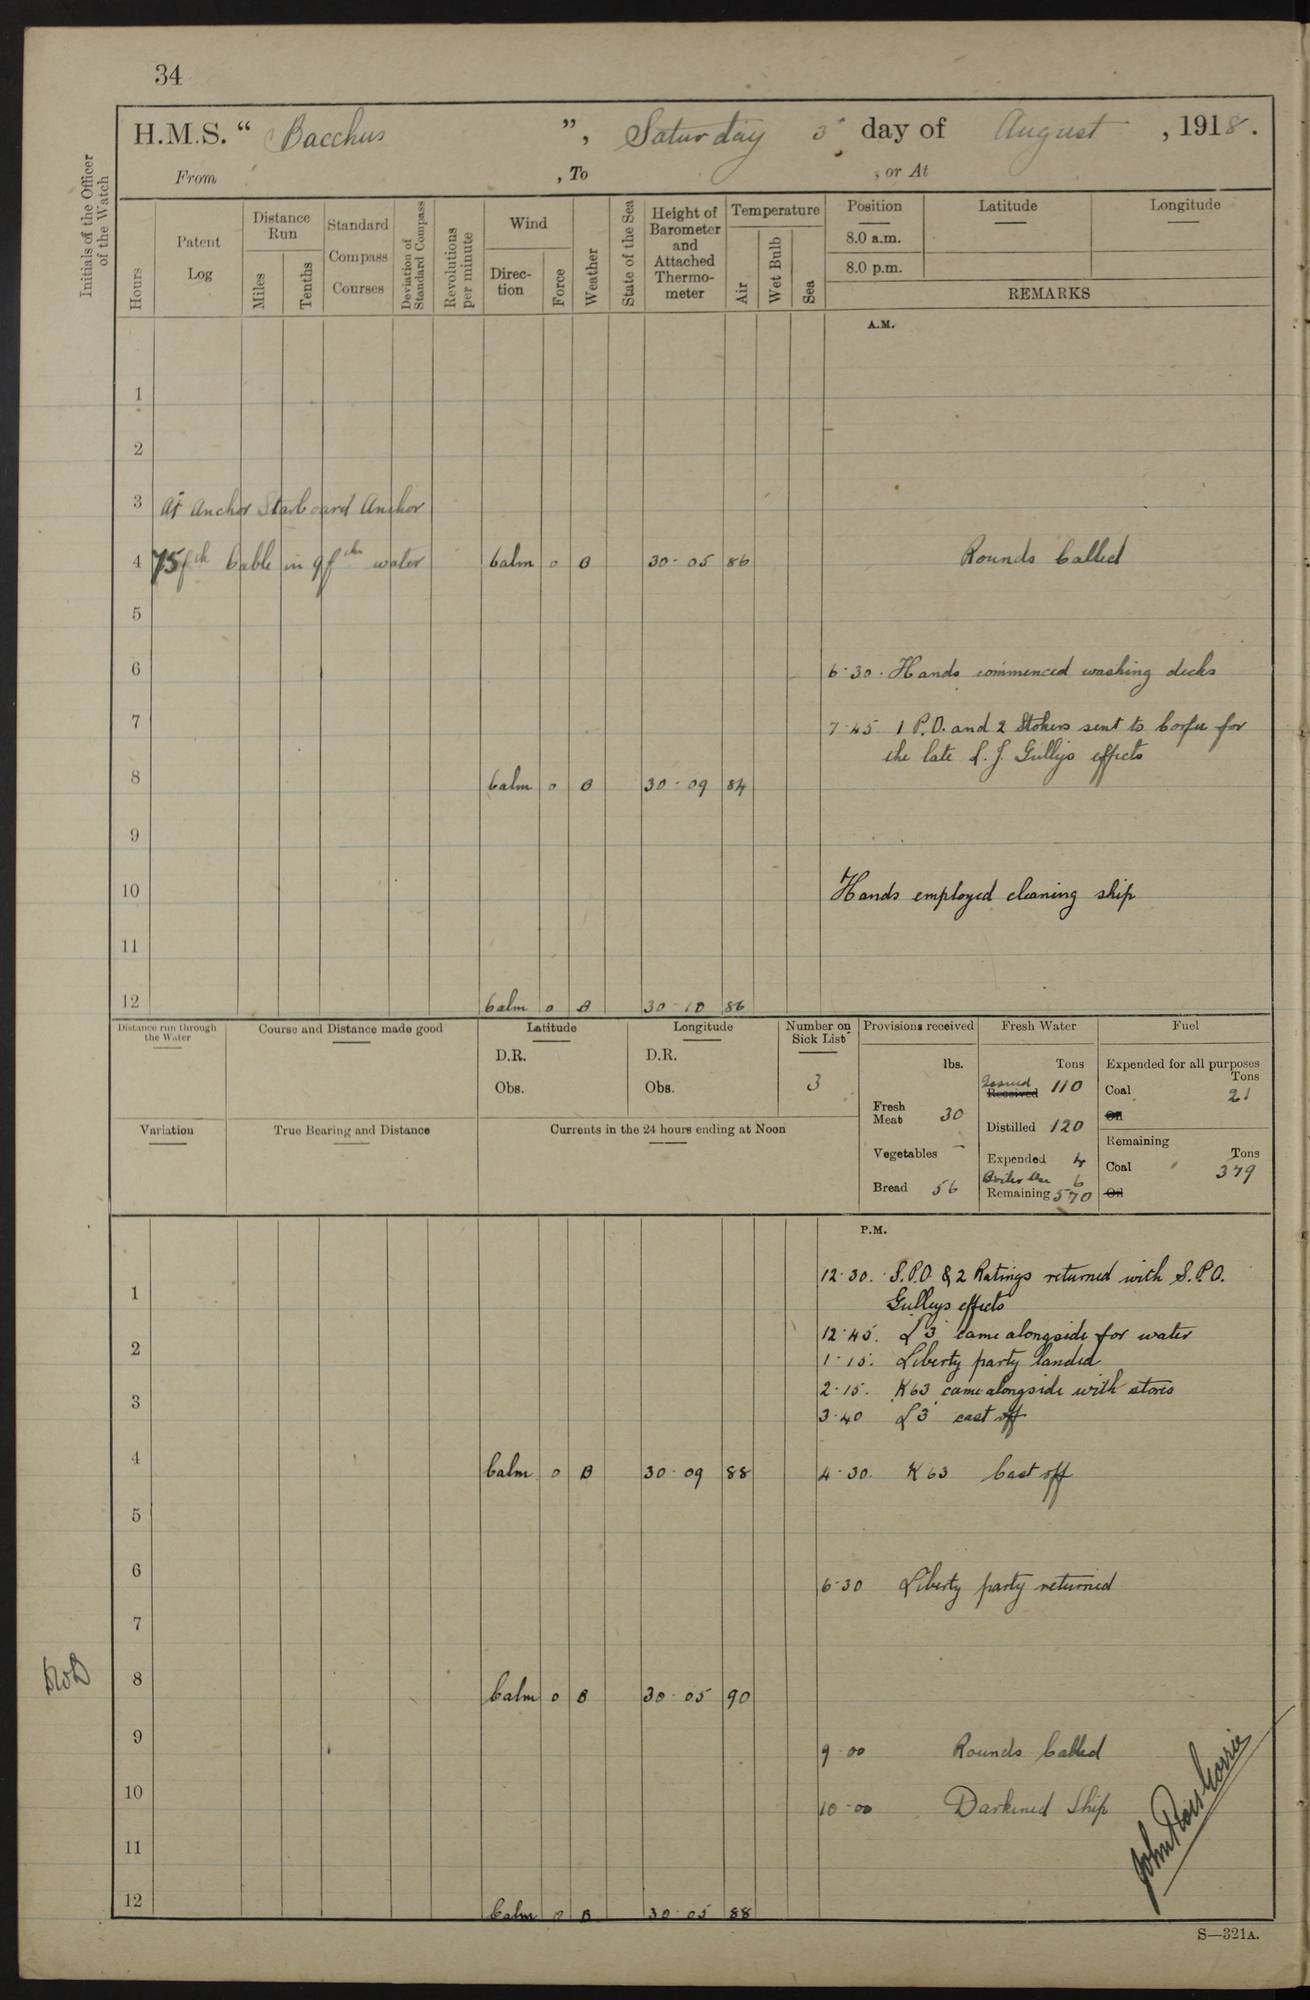 34
H.M.S. “ Bacchus ”, Saturday 3 day of August , 1918.
From , To , or At
Initials of the Officer of the Watch
Hours
Patent Log
Distance Run
Miles
Tenths
Standard Compass Courses
Deviation of Standard Compass
Revolutions per minute
Wind
Direc-tion
Force
Weather
State of the Sea
Height of Barometer and Attached Thermo-meter
Temperature
Air
Wet Bulb
Sea
Position Latitude Longitude
8.0 a.m.
8.0 p.m.
REMARKS
A.M.
1
2
3 At Anchor Starboard Anchor
4 75 fth Cable in 9 fths water Calm 0 B 30-05 86 Rounds Called
5
6 6-30. Hands commenced washing decks
7 7-45 1 P.O. and 2 Stokers sent to Corfu for
the late S. J. Gullys effects
8 Calm 0 B 30-09 84
9
10 Hands employed cleaning ship
11
12 Calm 0 B 30-10 86
Distance run through the Water
Course and Distance made good
Latitude
D.R.
Obs.
Longitude
D.R.
Obs.
Number on Sick List
3
Variation
True Bearing and Distance
Currents in the 24 hours ending at Noon
Provisions received
lbs.
Fresh Meat 30
Vegetables —
Bread 56
Fresh Water
Tons
Issued Received 110
Distilled 120
Expended 4
Boiler Use 6
Remaining 570
Fuel
Expended for all purposes
Tons
Coal 21
Oil
Remaining
Tons
Coal 379
Oil
P.M.
12-30. S.P.O. & 2 Ratings returned with S.P.O.
1 Gulleys effects
12-45. L'3' came alongside for water
2 1-15. Liberty party landed
2-15. K63 came alongside with stores
3 3-40 L'3' cast off
4 Calm 0 B 30-09 88 4-30. K63 Cast off
5
6 6-30 Liberty party returned
7
8 Calm 0 B 30-05 90
9 9-00 Rounds Called
10 10-00 Darkened Ship
11
12 Calm 0 B 30-05 88
S—321A.